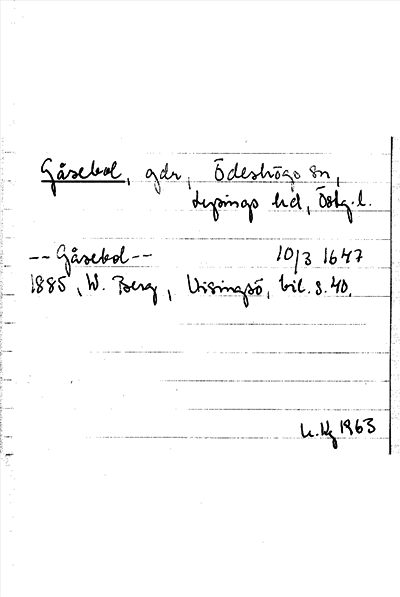 Gåsebol, gdr, Ödeshögs sn,
Lysings hd, Östg.l.
--Gåsebol-- 10/3 1647
1885, W. Berg, Visingsö, bil. s. 40.
1963